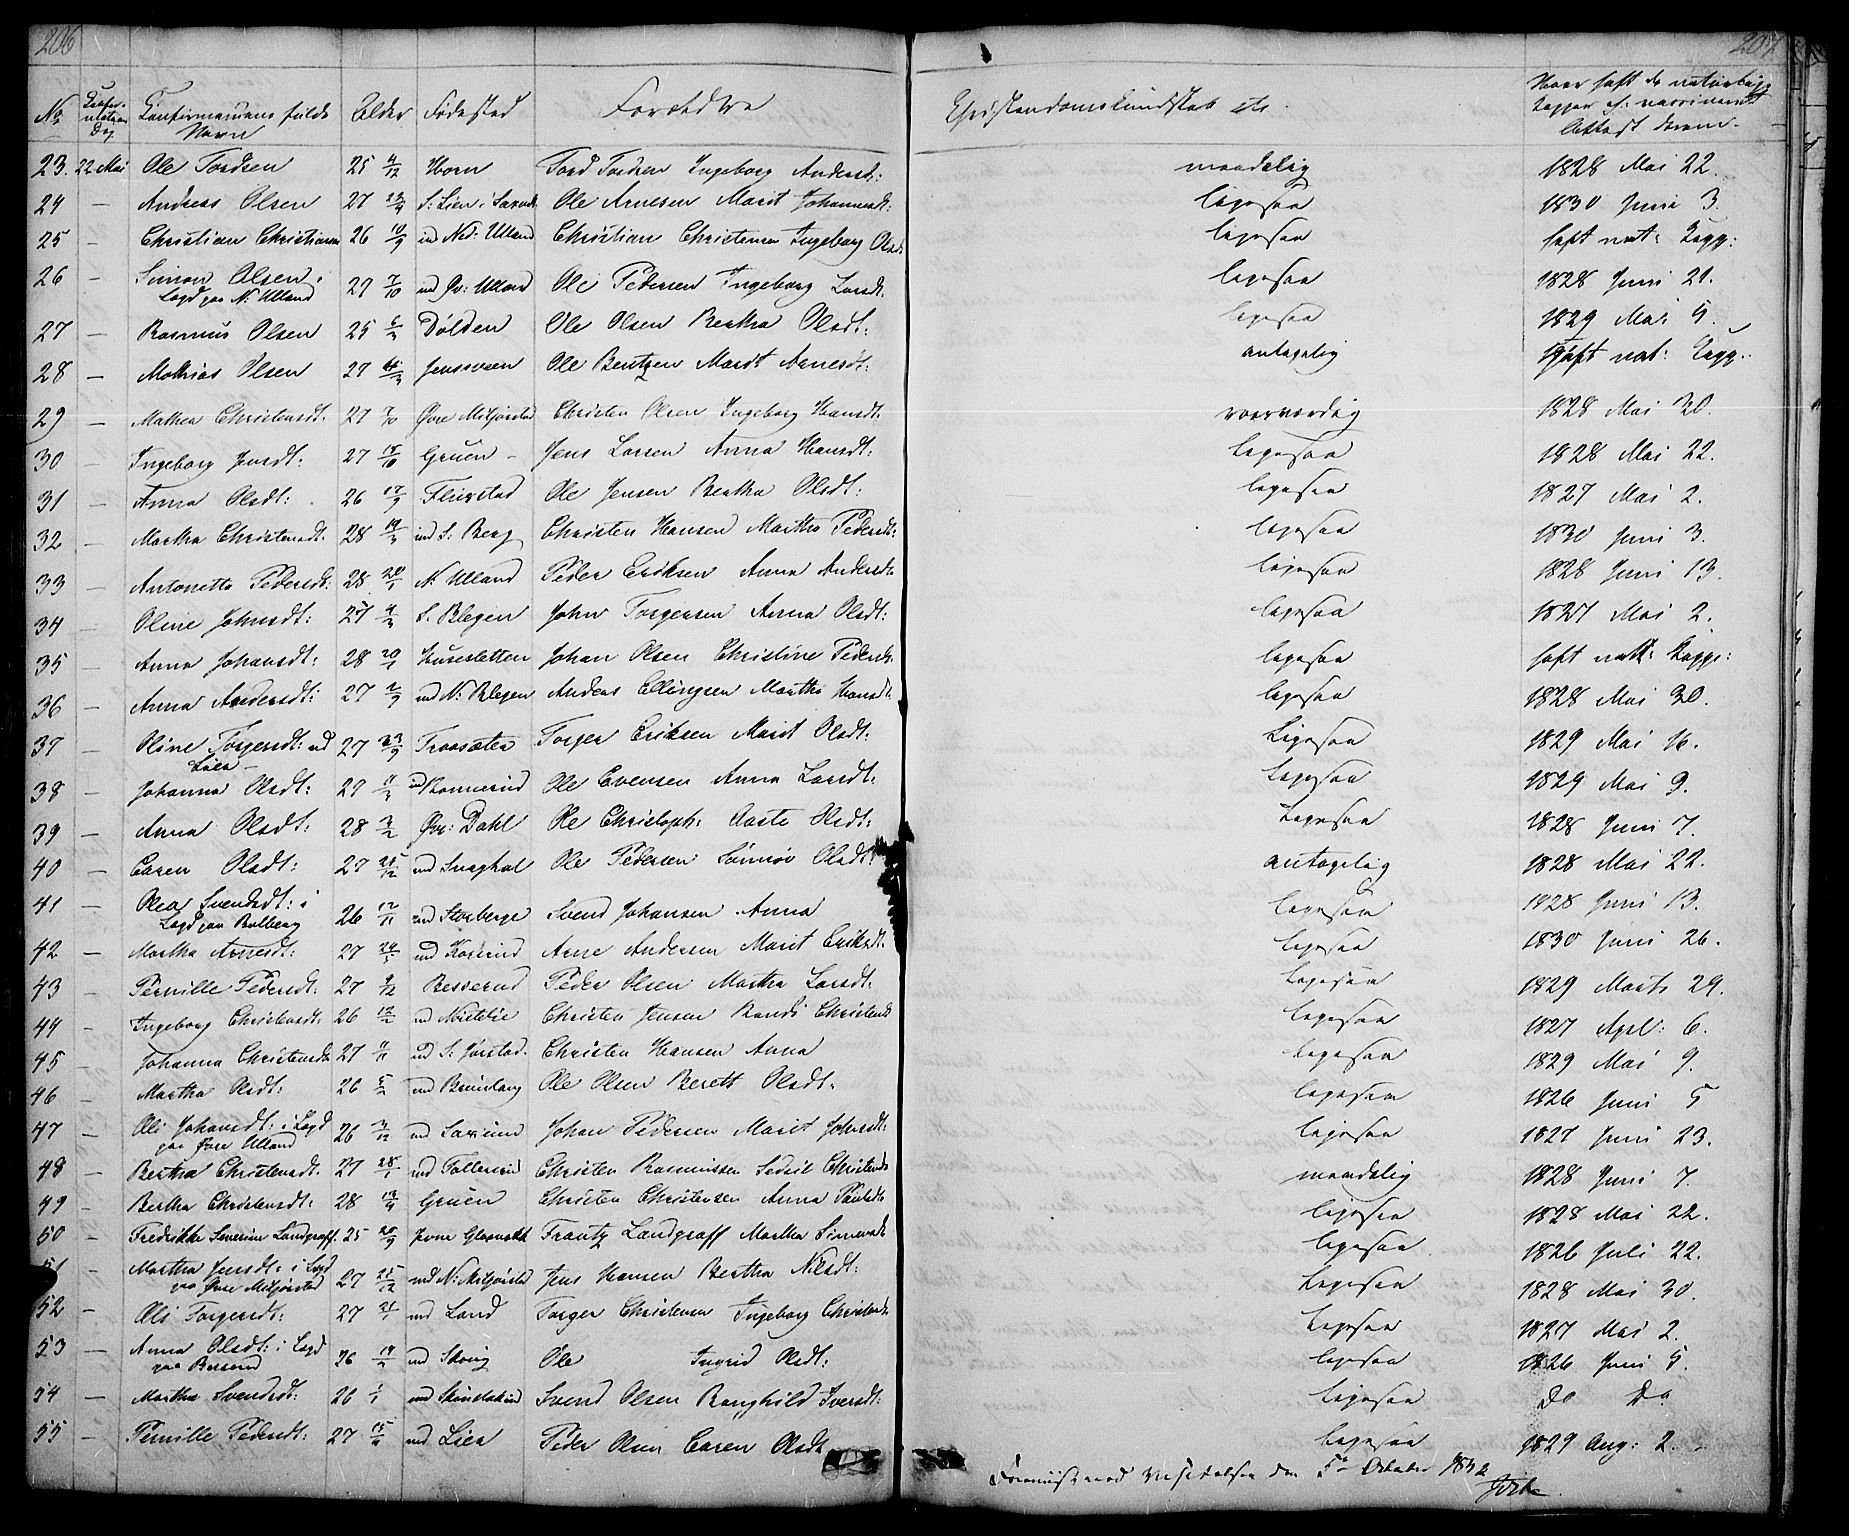 206
207
No Confirmations Dag Confirmandens fulde Navn Alder Fødested Forældre Christendomskundskab etc. Hvor haft de naturlige Kopper el: vaccineret Attest derom
23. 22 Mai Ole Tordsen 25 4/12 Horn Tord Tordsen Ingeborg Andersd: maadelig 1828 Mai 22.
24 — Andreas Olsen 27 S: Lien i Ole Arnesen Marit Johannesdt: ligesaa 1830 Juni 3.
25 — Christian Christiansen 26 10/9 und Ned: Ulland Christian Christensen Ingeborg Olsdt: ligesaa haft nat: Kopp:
26 — Simon Olsen i Lægd paa N: Ulland 27 7/10 und Øv: Ulland Ole Pedersen Ingeborg Larsdt. ligesaa 1828 Juni 21.
27 — Rasmus Olsen 25 Dølden Ole Olsen Bertha Olsdt: ligesaa 1829 Mai 5.
28 — Mathias Olsen 27 Jenssveen Ole Bentzen Marit Arnesdt: antagelig haft nat: Kopp:
29 — Mathea Christensdt. 27 7/10 Øvre Mitjørstad Christen Olsen Ingeborg Hansdt: 1828 Mai 30.
30 — Ingeborg Jensdt: 27 18/10 Gruen — Jens Larsen Anna Hansdt: ligesaa 1828 Mai 22.
31 — Anna Olsdt: 26 17/9 Flugstad Ole Jensen Bertha Olsdt: ligesaa 1827 Mai 2.
32 — Martha Christensdt. 28 und S: Berg Christen Hansen Martha Pedersdt: ligesaa 1830 Juni 3.
33 — Antonette Pedersdt. 28 20/1 N: Ulland Peder Eriksen Anna Andersdt ligesaa 1828 Juni 13.
34 — Oline Johnsdt: 27 4/3 S. Blegen John Torgersen Anna Olsdt: ligesaa 1827 Mai 2.
35 — Anna Johansdt: 28 20/1 Husesletten Johan Olsen Christine Pedersdt. ligesaa haft natt: Kopp:
36 — Anna Andersdt: 27 2/9 und N: Blegen Anders Ellingsen Martha Hansdt. ligesaa 1828 Mai 30.
37 — Oline Torgersdt: ud Lien — 27 Traasæter Torger Eriksen Marit Olsdt: Ligesaa 1829 Mai 16.
38 — Johanna Olsdt: 27 Ole Evensen Anna Larsdt: Ligesaa 1829 Mai 9.
39 — Anna Olsdt: 28 3/2 Øvr: Dahl Ole Christoph: Aaste Olsdt: Ligesaa 1828 Juni 7.
40 — Caren Olsdt: 27 25/12 und Svaghal Ole Pedersen Sønnøv Olsdt: antagelig 1828 Mai 22.
41 — Olea Svendsdt: i Lægd paa Bulberg 26 12/11 und Storberge Svend Johansen Anna ligesaa 1828 Juni 13.
42 — Martha Arnesdt: 27 24/5 und Arne Andersen Marit Eriksdt. ligesaa 1830 Juni 26.
43 — Pernille Pedersdt. 27 9/12 Besserud Peder Olsen Martha Larsdt. ligesaa 1829 Marts 29.
44 — Ingeborg Christensdt. 26 12/2 und Nordlie Christen Jensen Randi Christensdt ligesaa 1827 Apl: 6.
45 — Johanna Christensdt. 27 und S: Jørstad. Christen Hansen Anna ligesaa 1829 Mai 9.
46 — Martha Olsdt: 26 5/2 und Ole Olsen Berett Olsdt. ligesaa 1826 Juni 5
47 — Oli Johansdt: i Lægd paa Øvre Ulland 26 3/12 und Johan Pedersen Marit Johnsdt: ligesaa 1827 Juni 23.
48 — Bertha Christensdt. 27 28/1 und Tollersrud Christen Rasmussen Sedsil Christensdt maadelig 1828 Juni 7.
49 — Bertha Christensdt: 28 Gruen Christen Christensen Anna Paulsdt. ligesaa 1828 Mai 22.
50 — Fredrikke Severine Landgraff 25 Frantz Landgraff Martha Simensdt ligesaa 1826 Juli 22.
51 — Martha Jensdt: i Lægd paa Øvre Mitjørstad 27 25/12 und N: Mitjørstad Jens Hansen Bertha Nilsdt: Ligesaa 1828 Mai 30.
52 — Oli Torgersdt: 27 und Land Torger Christensen Ingeborg Christensdt Ligesaa 1827 Mai 2.
53 — Anna Olsdt: i Lægd paa Besserud 26 und Skoug Ole Ingrid Olsdt: ligesaa 1826 Juni 5.
54 — Martha Svendsdt: 26 und Svend Olsen Ranghild Iversdt: ligesaa Do Do
55 — Pernille Pedersdt: 27 und Lien Peder Olsen Caren Olsdt. ligesaa 1829 Aug: 2.
ved Visitatsen den 5te October 1842